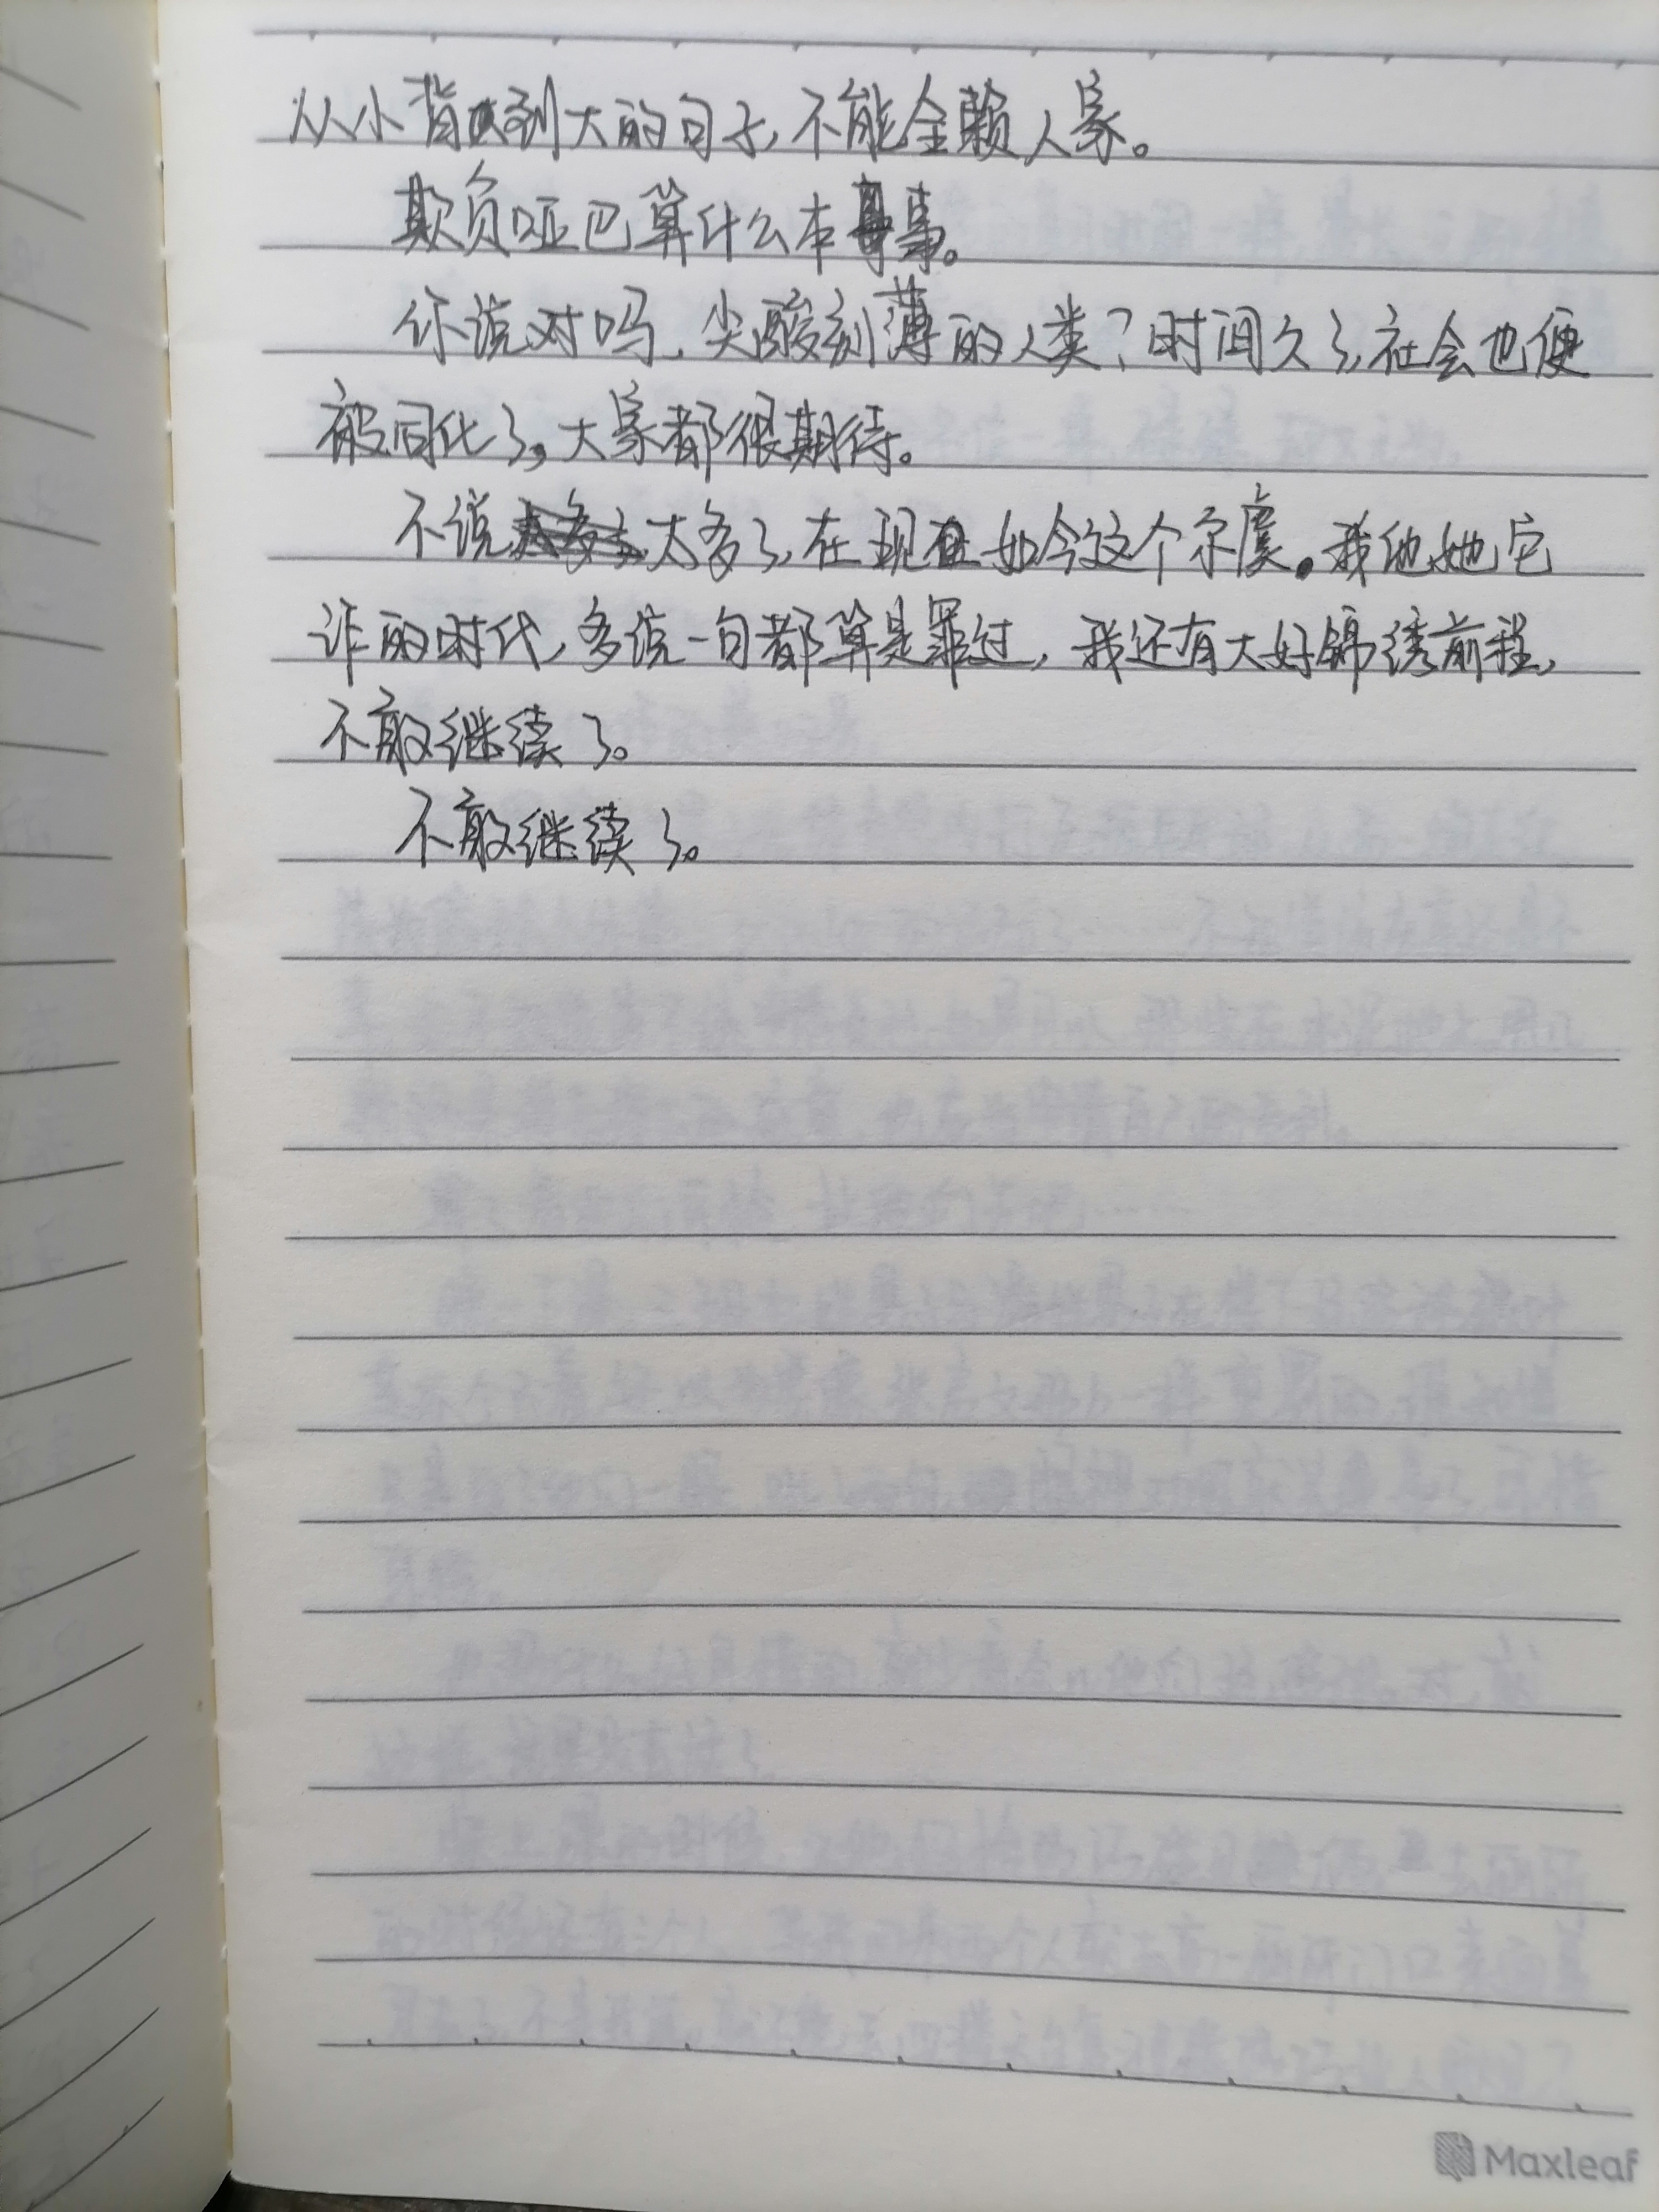 从小背到大的句子，不能全赖人家。
欺负哑巴算什么本事。
你说对吗，尖酸刻薄的人类？时间久了，社会也便
被同化了，大家都很期待。
不说太多了，在现在如今这个尔虞。我他她它
诈的时代，多说一句都算是罪过，我还有大好锦绣前程，
不敢继续了。
不敢继续了。
Maxleaf